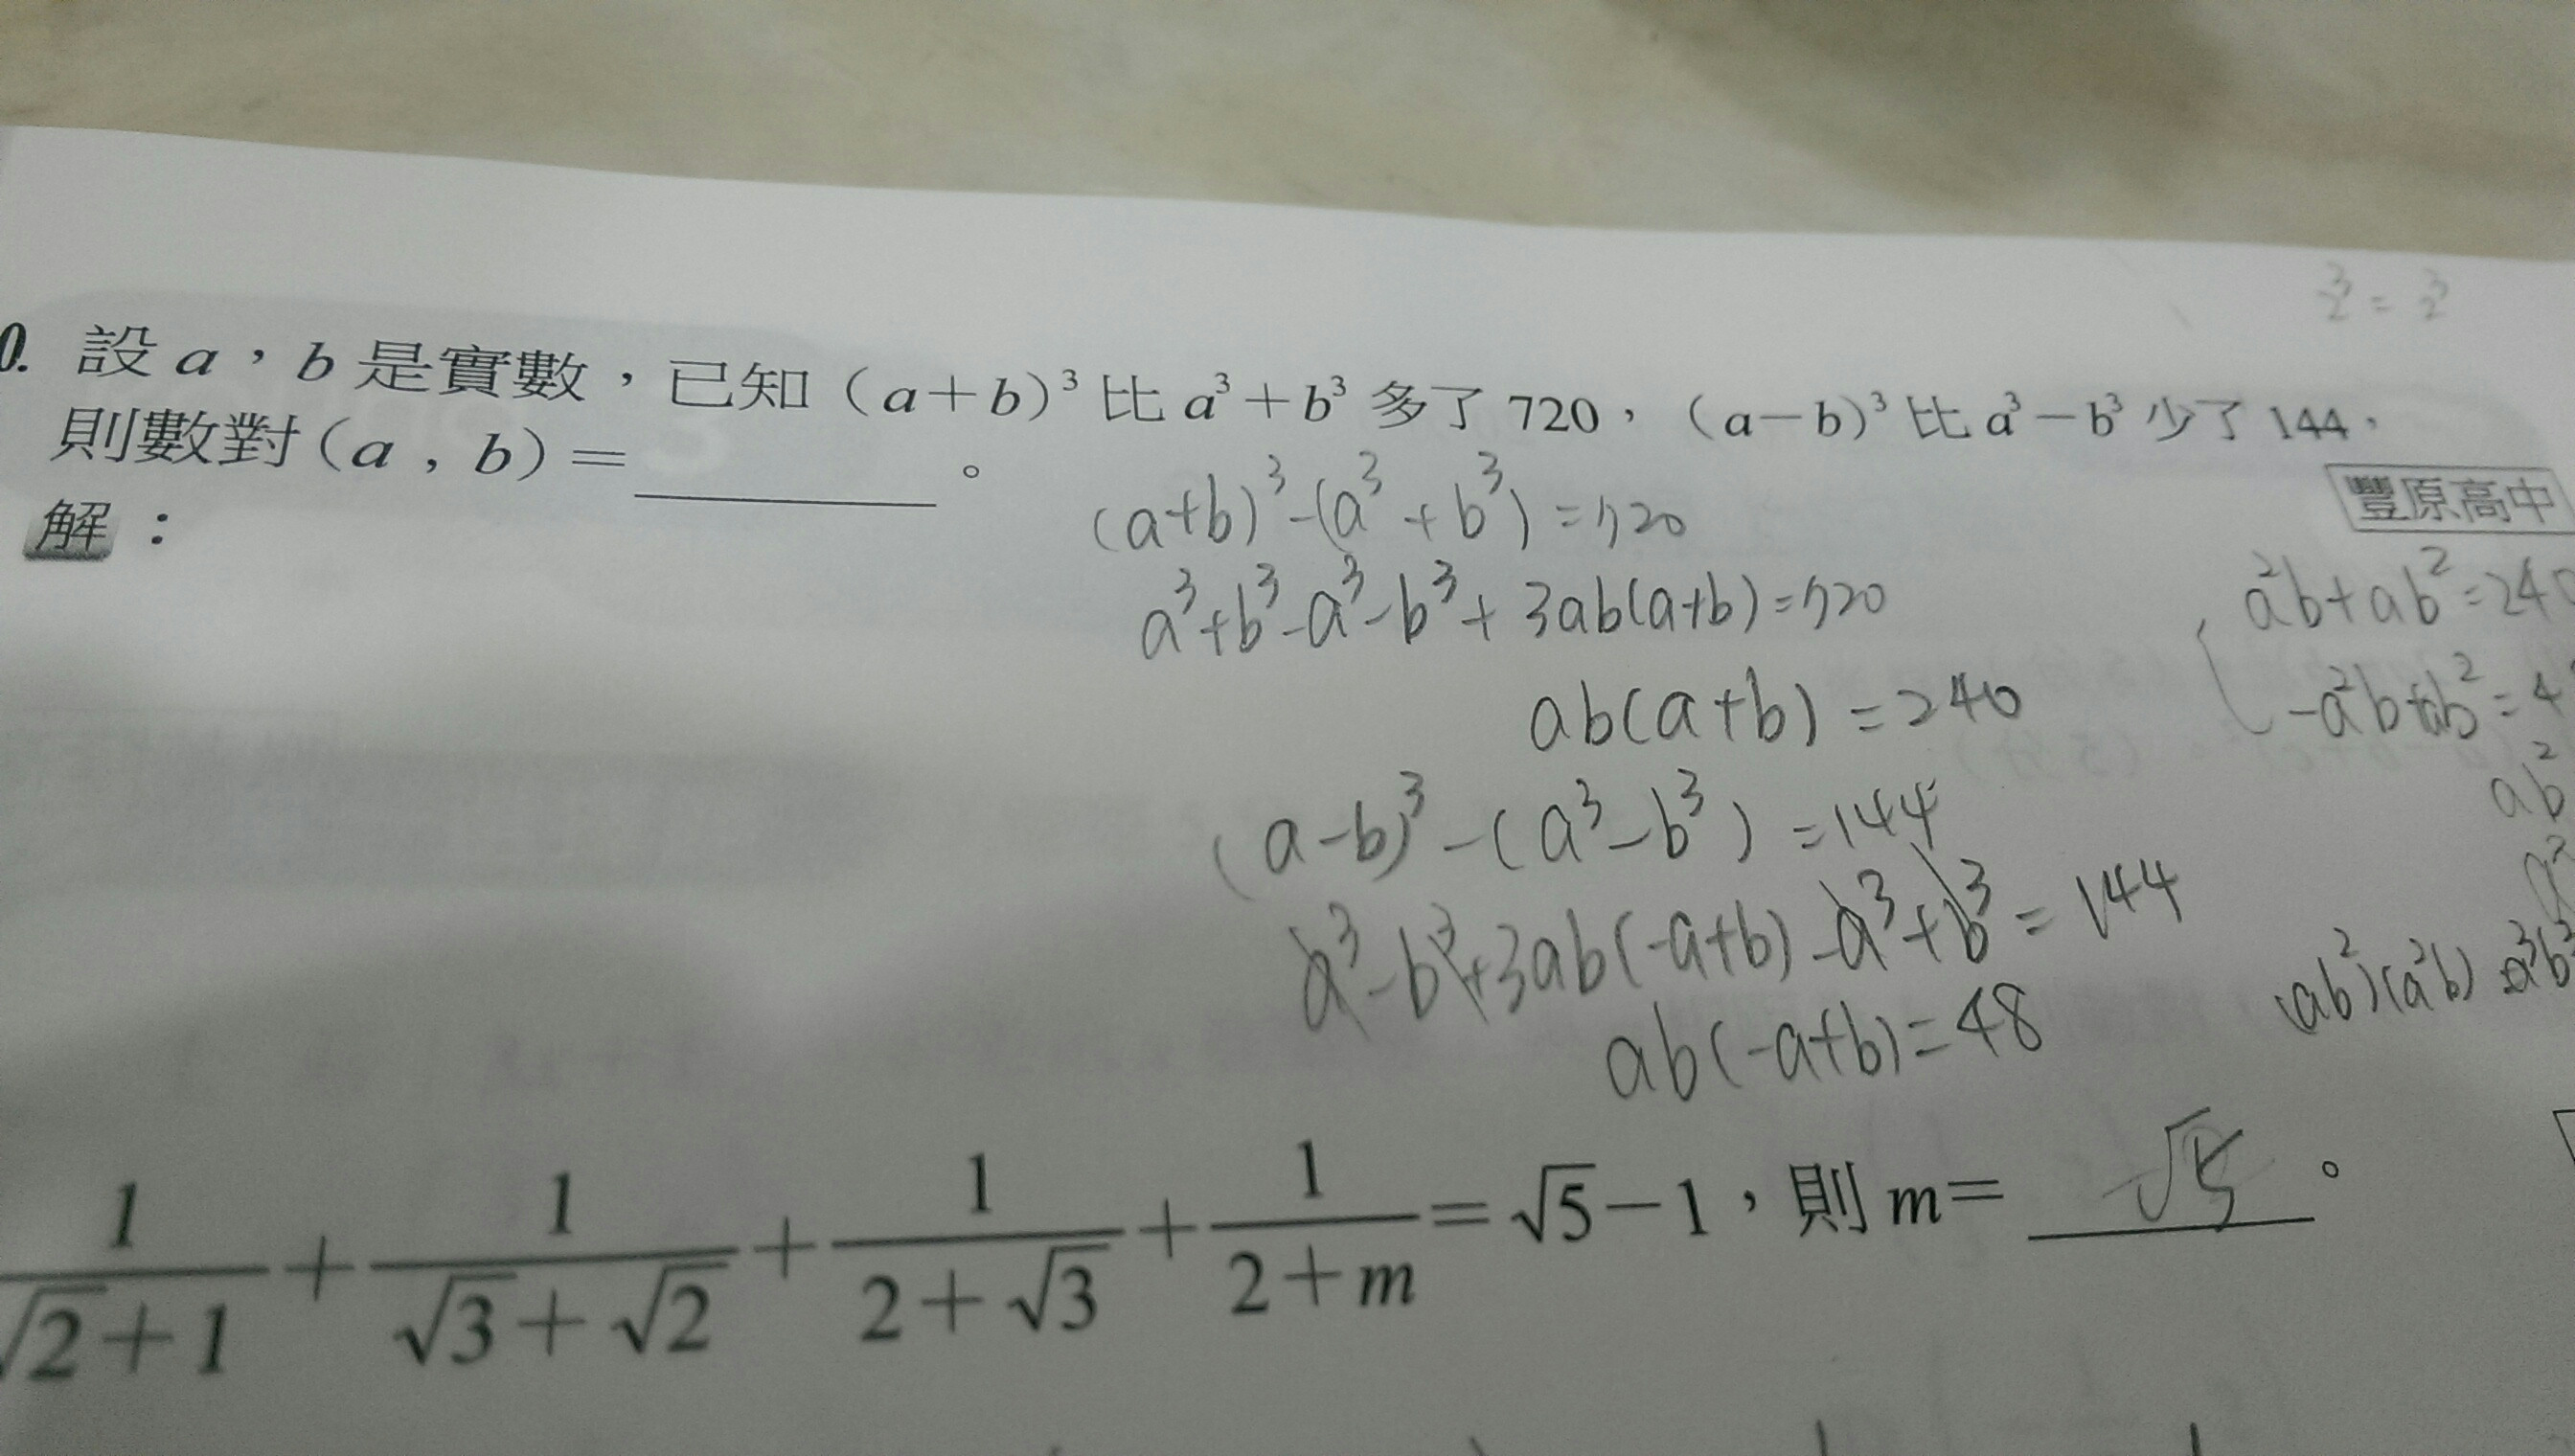 0. 設 a，b 是實數，已知（a＋b）³ 比 a³＋b³ 多了 720，（a－b）³ 比 a³－b³ 少了 144，
則數對（a , b）＝＿＿＿＿。
豐原高中
解：
3/2 = 3/2
(a+b)³-(a³+b³)=720
a³+b³-a³-b³+3ab(a+b)=720
ab(a+b)=240
(a-b)³-(a³-b³)=144
a³-b³+3ab(-a+b)-a³+b³=144
ab(-a+b)=48
a²b+ab²=240
-a²b+ab²=4
ab²
a²
(ab²)(a²b) a³b³
1/(√2+1)＋1/(√3+√2)＋1/(2+√3)＋1/(2+m)＝√5－1，則 m＝ √5 。